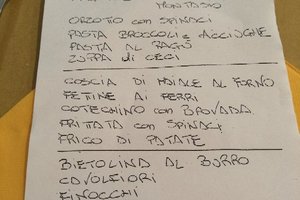 MONTASIO
ORZOTTO con SPINACI
PASTA BROCCOLI e ACCIUGHE
PASTA AL RAGÙ
ZUPPA di CECI
COSCIA DI MAIALE AL FORNO
FETTINE AI FERRI
COTECHINO con BROVADA
FRITTATA con SPINACI
FRICO DI PATATE
BIETOLINA AL BURRO
CAVOLFIORI
FINOCCHI